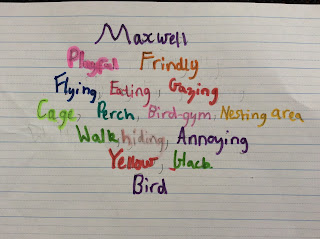 Maxwell
Playful Frindly
Flying, Eating, Gazing
Cage, Perch, Bird-gym, Nesting area
Walk, hiding, Annoying
Yellow, black
Bird